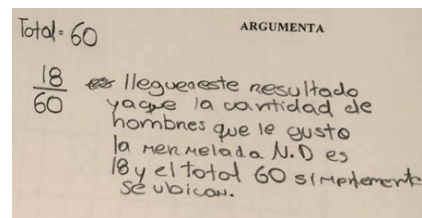 Total = 60
ARGUMENTA
18
60
llegue a este resultado
ya que la cantidad de
hombres que le gusto
la mermelada N.D es
18 y el total 60 simplemente
se ubican.